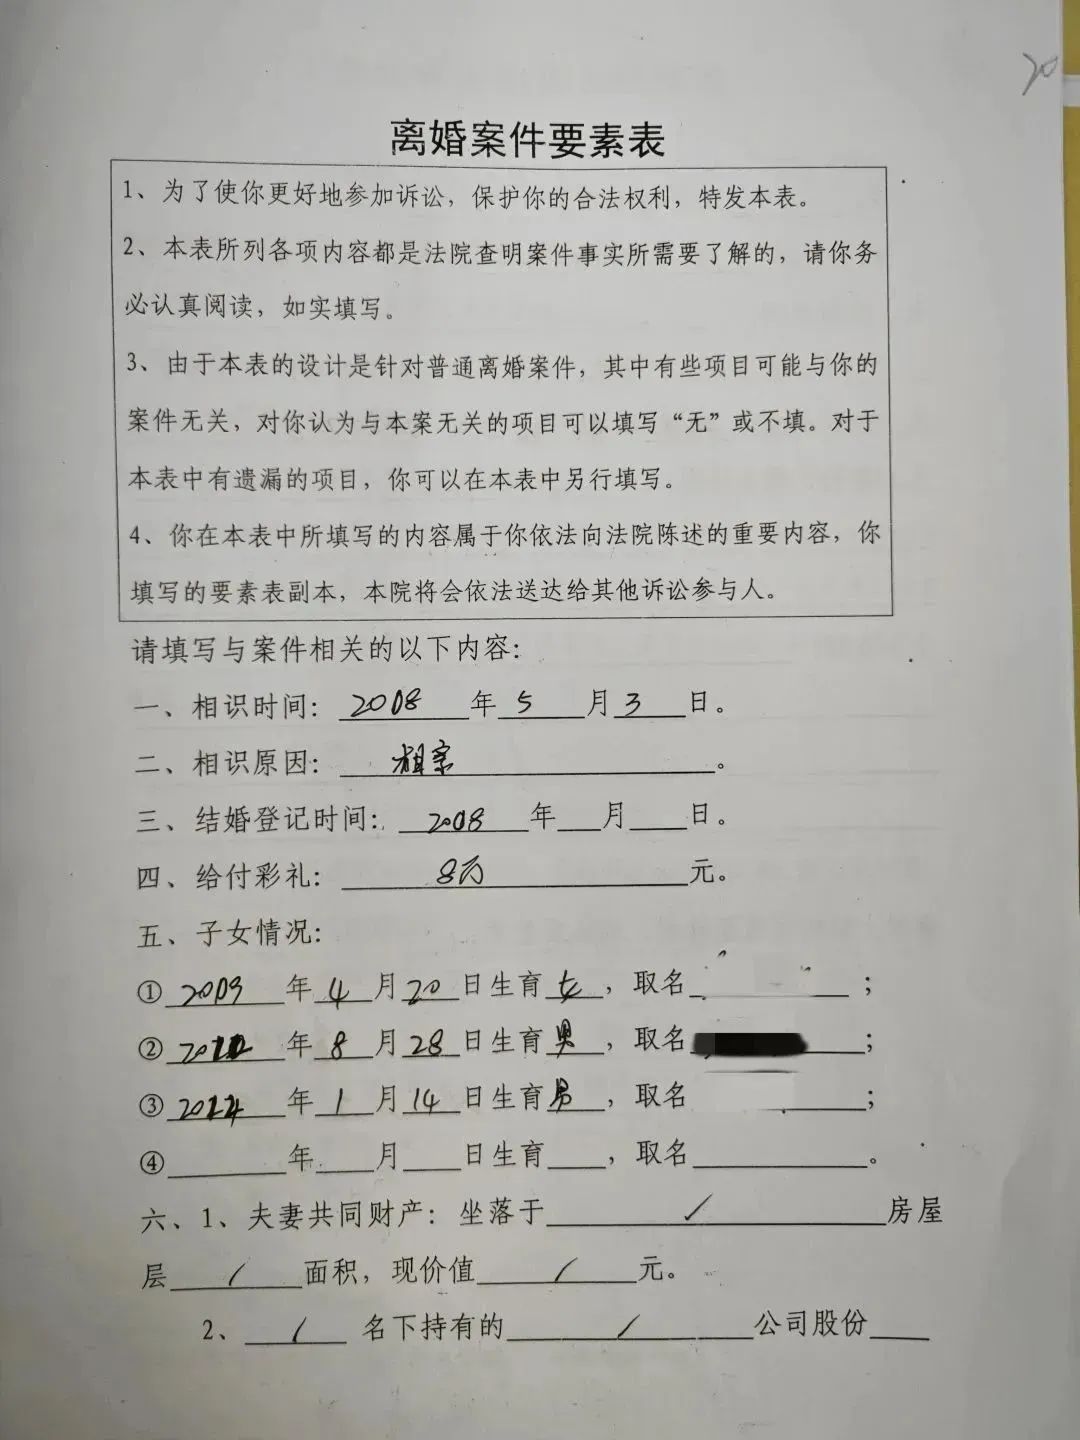 20
离婚案件要素表
1、为了使你更好地参加诉讼，保护你的合法权利，特发本表。
2、本表所列各项内容都是法院查明案件事实所需要了解的，请你务
必认真阅读，如实填写。
3、由于本表的设计是针对普通离婚案件，其中有些项目可能与你的
案件无关，对你认为与本案无关的项目可以填写“无”或不填。对于
本表中有遗漏的项目，你可以在本表中另行填写。
4、你在本表中所填写的内容属于你依法向法院陈述的重要内容，你
填写的要素表副本，本院将会依法送达给其他诉讼参与人。
请填写与案件相关的以下内容：
一、相识时间：2008年5月3日。
二、相识原因：相亲。
三、结婚登记时间：2008年__月__日。
四、给付彩礼：8万元。
五、子女情况：
①2009年4月20日生育女，取名____；
②年8月28日生育男，取名____；
③年1月14日生育男，取名____；
④____年__月__日生育__，取名____。
六、1、夫妻共同财产：坐落于/房屋
层/面积，现价值/元。
2、/名下持有的/公司股份__